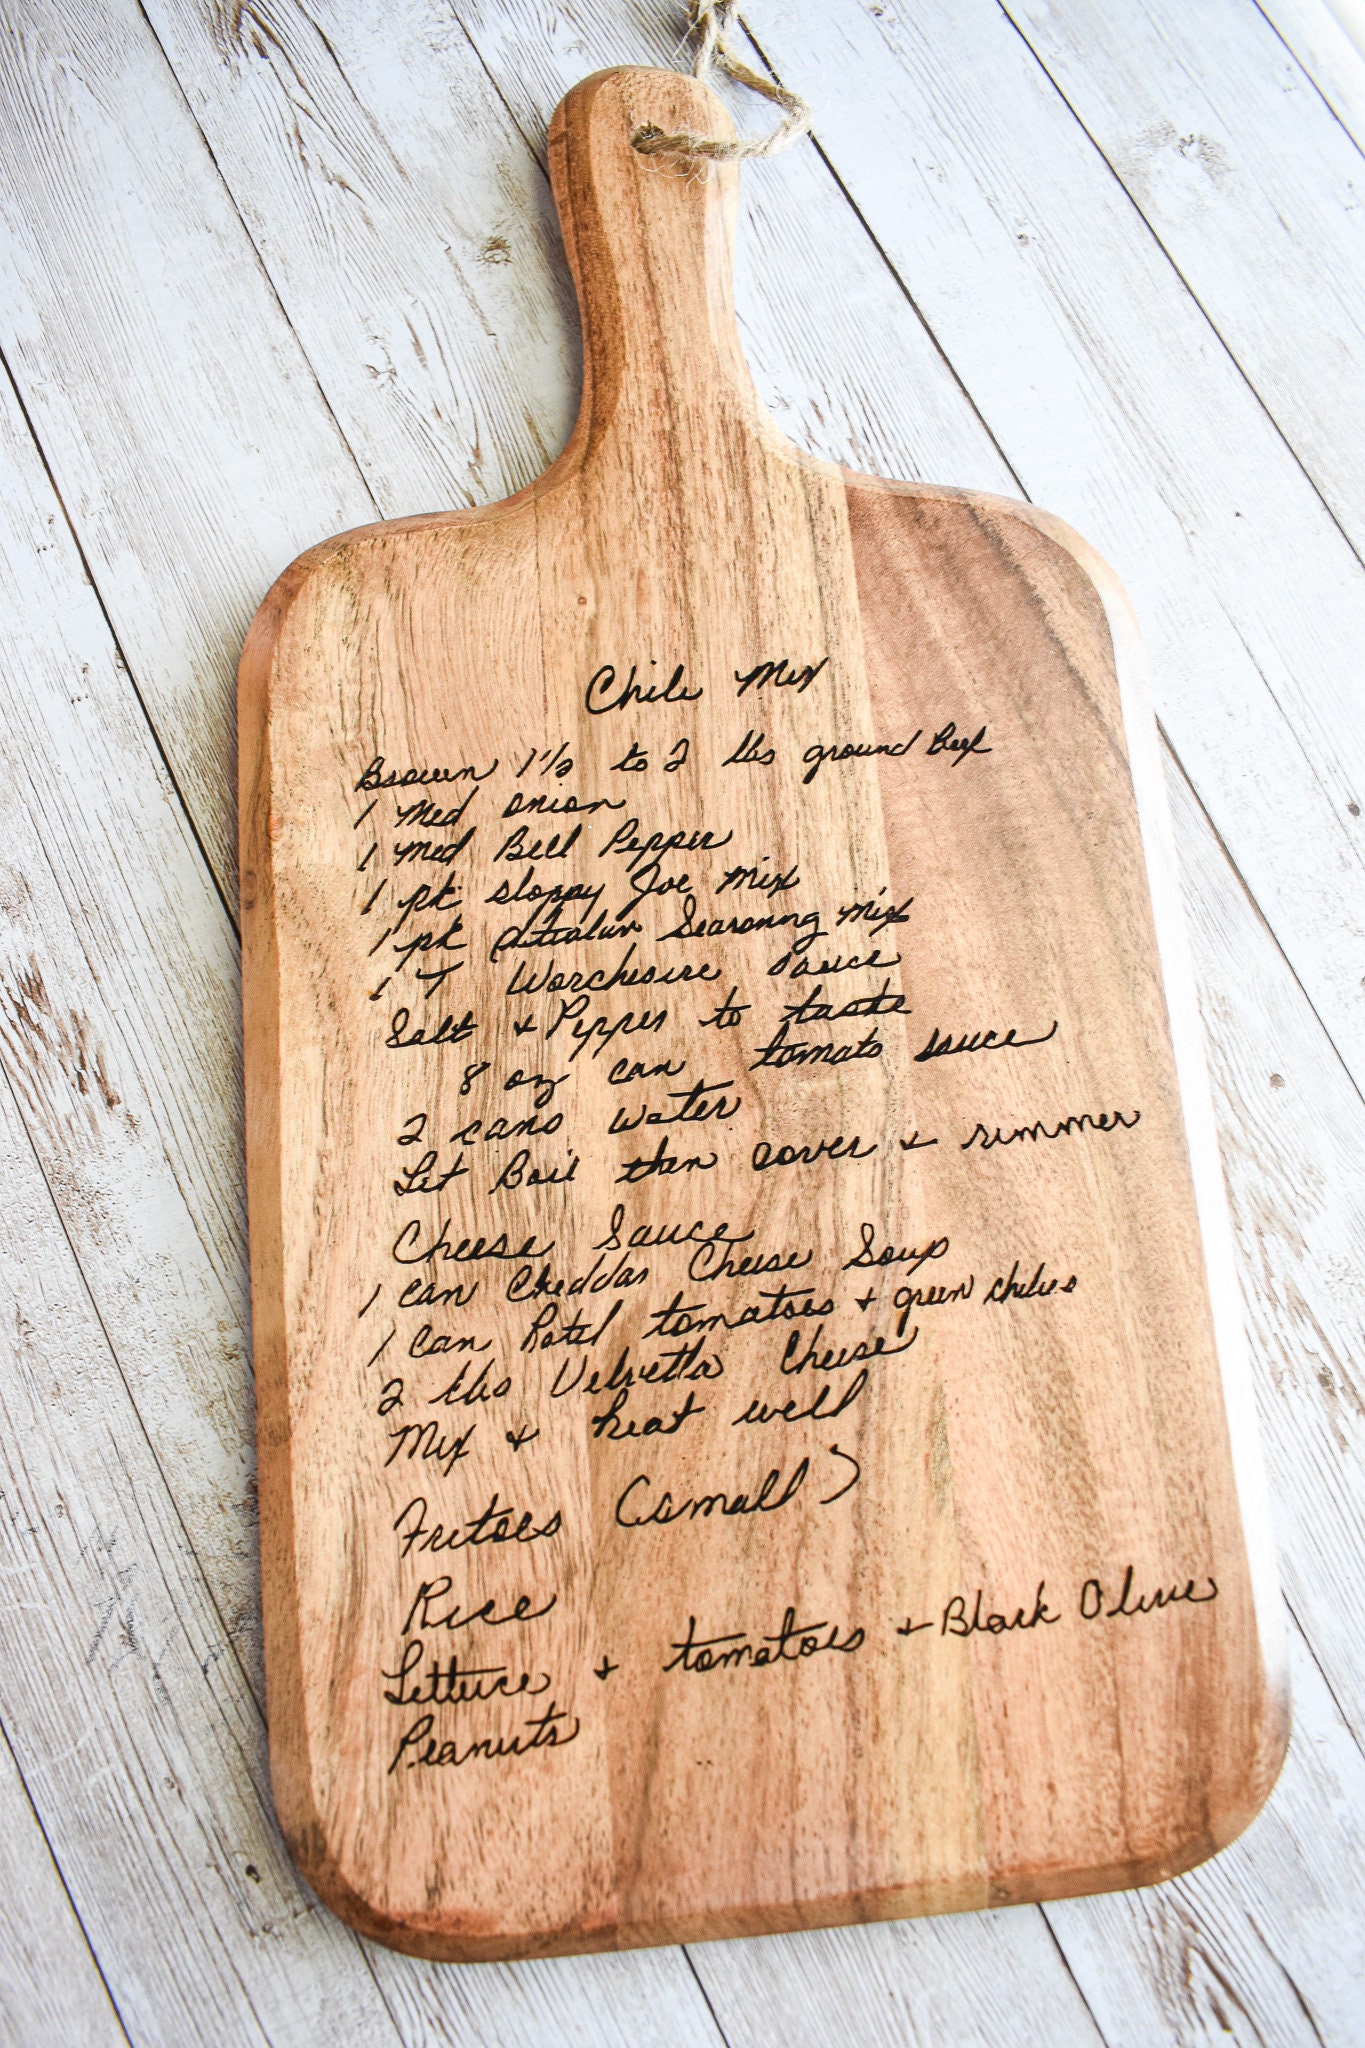 Chili Mix
Brown 1 1/2 to 2 lbs ground Beef
1 Med onion
1 Med Bell Pepper
1 pk sloppy Joe Mix
1 pk Seasoning Mix
1 T Worchesire sauce
Salt + Pepper to taste
8 oz can tomato sauce
2 cans water
Let Boil then cover + simmer
Cheese Sauce
1 can Cheddar Cheese Soup
1 can Rotel tomatoes + green chilies
2 lbs Velvetta Cheese
Mix + heat well
Fritoes (small)
Rice
Lettuce + tomatoes + Black Olive
Peanuts